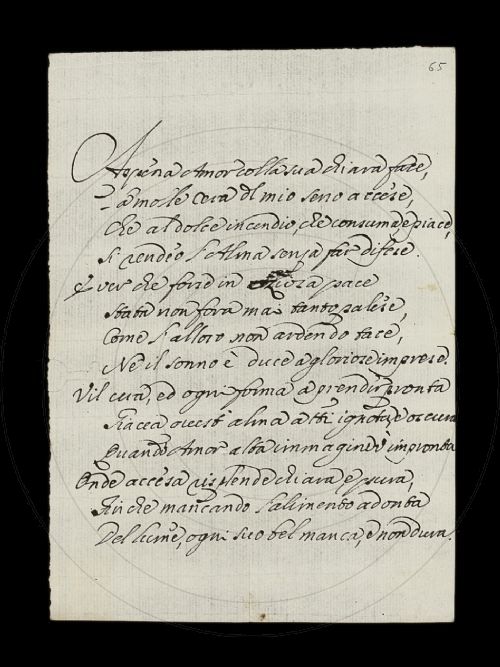 65
Appena Amor colla sua chiara face,
La molle cera del mio seno accese,
Che al dolce incendio, che consuma, e piace,
Si rendeo l'Alma senza far difese.
E ver che forse in pace
Stata non fora mai tanto palese,
Come l'alloro non ardendo tace,
Ne il sonno è duce a gloriose imprese.
Vil cera, ed ogni forma a prendir pronta
Giacea quest' alma a tti ignota, e oscura
Quando Amor alta immagine v'impronta
Onde accesa risplende chiara e pura,
Fin che mancando l'alimento ad onta
Del lume, ogni suo bel manca, e non dura.